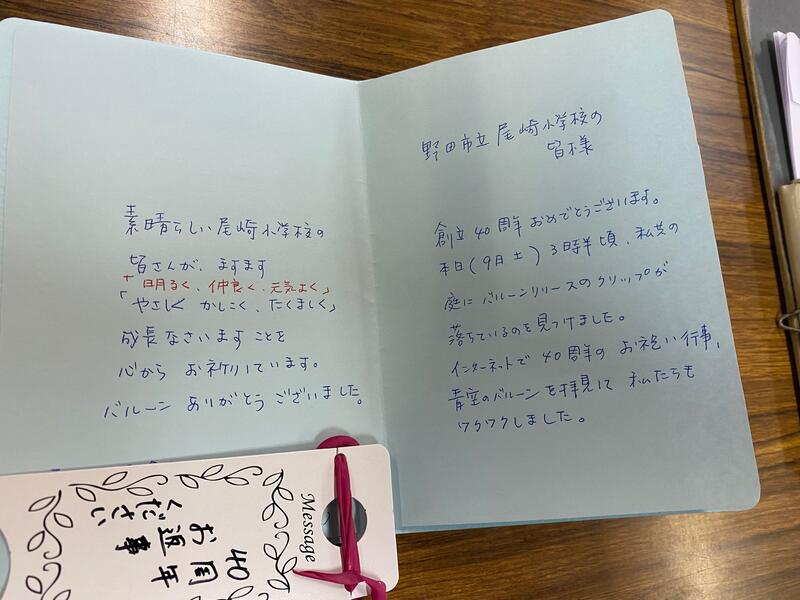 野田市立尾崎小学校の
皆様
創立40周年おめでとうございます。
本日(9月 土)3時半頃、私共の
庭にバルーンリリースのクリップが
落ちているのを見つけました。
インターネットで40周年のお祝い行事、
青空のバルーンを拝見して私たちも
ワクワクしました。
素晴らしい尾崎小学校の
皆さんが、ますます
明るく、仲良く、元気よく
「やさしく かしこく、たくましく」
成長なさいますことを
心からお祈りしています。
バルーンありがとうございました。
Message
40周年
お返事
ください